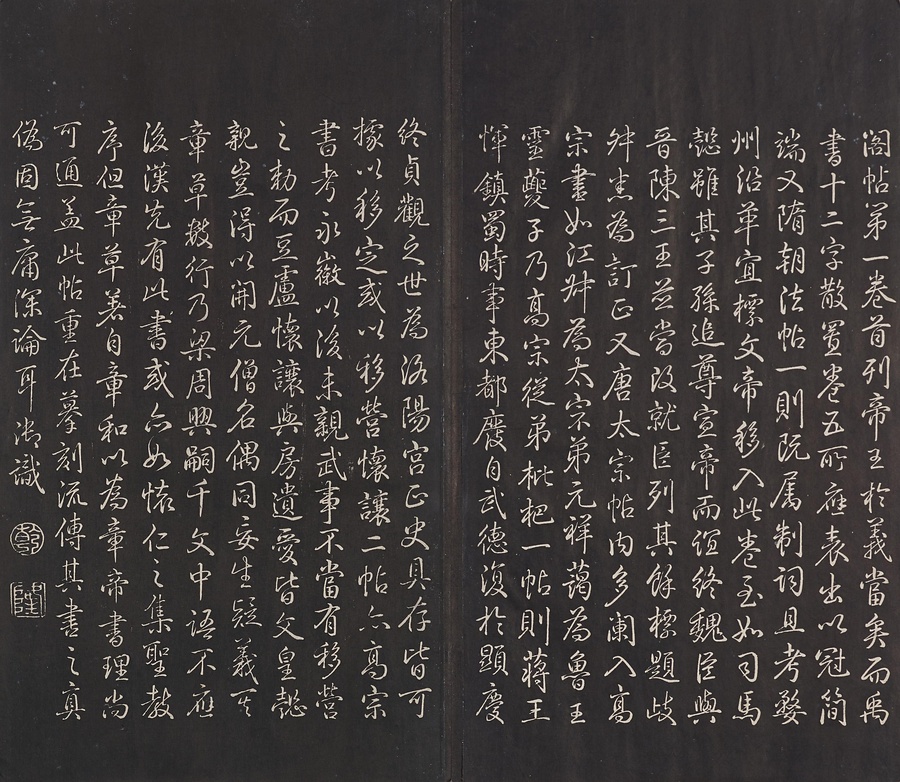 閣帖第一卷首列帝王於義當矣而禹
書十二字散置卷五所應表出以冠簡
端又隋朝法帖一則既屬制詞且考婺
州沿革宜標文帝移入此卷至如司馬
懿雖其子孫追尊宣帝而誼終魏臣與
晉陳三王並當改就臣列其餘標題歧
舛悉為訂正又唐太宗帖內多闌入高
宗書如江叔為太宗弟元祥藹為魯王
靈夔子乃高宗從弟枇杷一帖則蔣王
惲鎮蜀時事東都廢自武德復於顯慶
終貞觀之世為洛陽宮正史具存皆可
據以移定或以移營懷讓二帖亦高宗
書考永徽以後未親武事不當有移營
之勅而豆盧懷讓與房遺愛皆文皇懿
親豈得以開元僧名偶同妄生疑義至
章草數行乃梁周興嗣千文中語不應
後漢先有此書或亦如懷仁之集聖教
序但章草著自章和以為章帝書理尚
可通蓋此帖重在摹刻流傳其書之真
偽固無庸深論耳御識